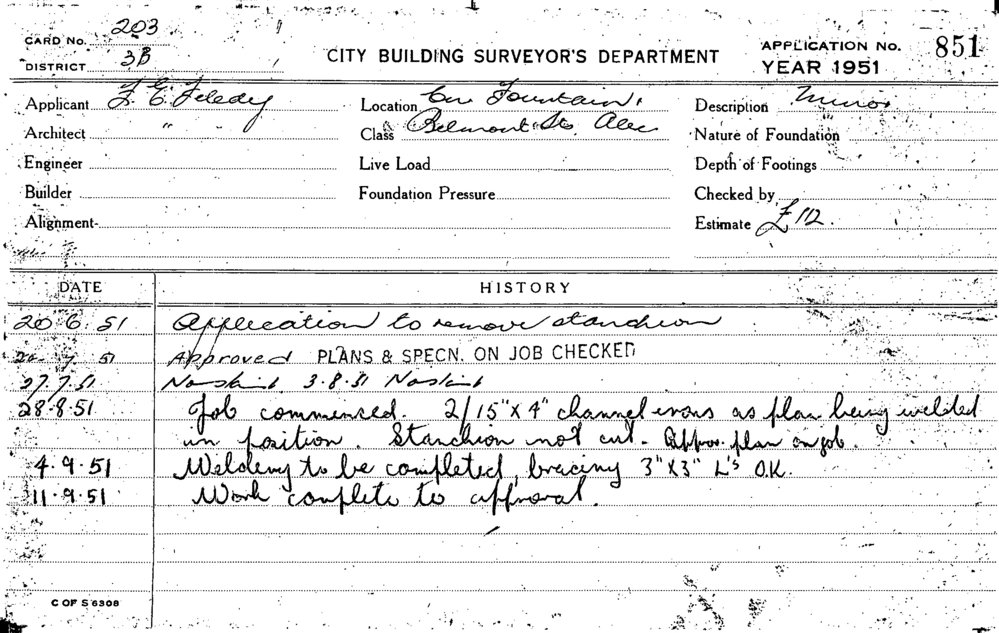 CARD No. 203
DISTRICT 3B
CITY BUILDING SURVEYOR'S DEPARTMENT
APPLICATION No. 851
YEAR 1951
Applicant F. E. Feledy
Location Cnr Fountain &
Description Minor
Architect "
Class Belmont Sts. Alex
Nature of Foundation
Engineer
Live Load
Depth of Footings
Builder
Foundation Pressure
Checked by
Alignment
Estimate £112.
DATE HISTORY
20.6.51 Application to remove stanchion
7.51 Approved PLANS & SPECN. ON JOB CHECKED
27.7.51 No start 3.8.51 No start
28.8.51 Job commenced. 2/15"X4" channel irons as plan being welded
in position. Stanchion not cut. Approv. plan on job.
4.9.51 Welding to be completed, bracing 3"X3" L's O.K.
11.9.51 Work complete to approval.
C OF S 6308